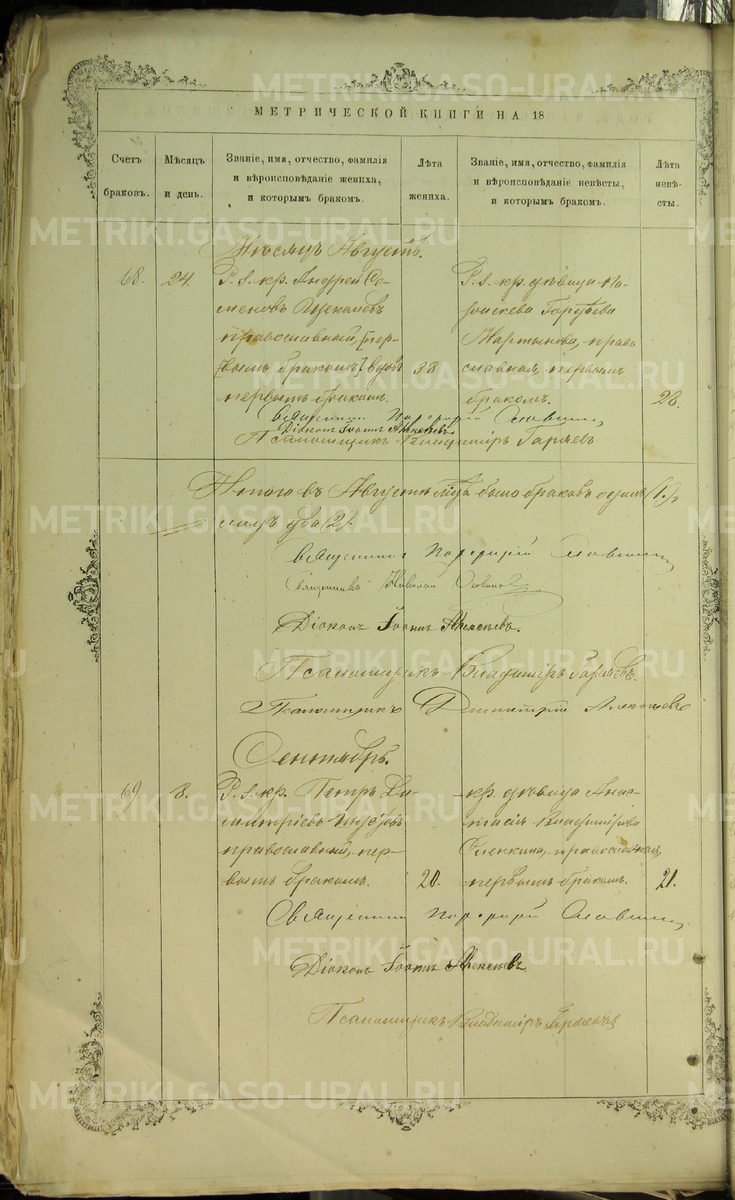 МЕТРИЧЕСКОЙ КНИГИ НА 18
Счетъ браковъ.
Мѣсяцъ и день.
Званіе, имя, отчество, фамилія и вѣроисповѣданіе жениха, и которымъ бракомъ.
Лѣта жениха.
Званіе, имя, отчество, фамилія и вѣроисповѣданіе невѣсты, и которымъ бракомъ.
Лѣта невѣсты.
Мѣсяцъ Августъ.
68.
24.
кр. Андрей Се-
меновъ
православный, [пер-
вымъ бракомъ] вдовъ
первымъ бракомъ.
38
кр. дѣвица Па-
раскева
Мартынова, право
славная, первымъ
бракомъ.
28.
Священникъ Порфирій
Діаконъ Іоаннъ Алексѣевъ
Псаломщикъ Владиміръ Гаряевъ
Итого въ Августѣ м-цѣ было браковъ одинъ (1),
лицъ два (2).
Священникъ Порфирій
Священникъ Николай
Діаконъ Іоаннъ Алексѣевъ.
Псаломщикъ Владиміръ Гаряевъ.
Псаломщикъ Димитрій
Сентябрь.
69.
8.
кр. Петръ Ди-
митріевъ
православный, пер-
вымъ бракомъ.
20.
кр. дѣвица Анас-
тасія Владимірова
православная,
первымъ бракомъ.
21.
Священникъ Порфирій
Діаконъ Іоаннъ Алексѣевъ
Псаломщикъ Владиміръ Гаряевъ
METRIKI.GASO-URAL.RU